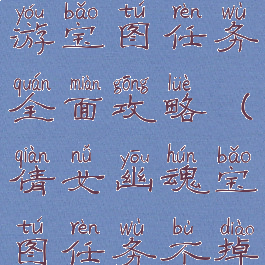 yóu bǎo tú rèn wù
游宝图任务
quán miàn gōng lüè
全面攻略（
qiàn nǚ yōu hún bǎo
倩女幽魂宝
tú rèn wù bù diào
图任务不掉